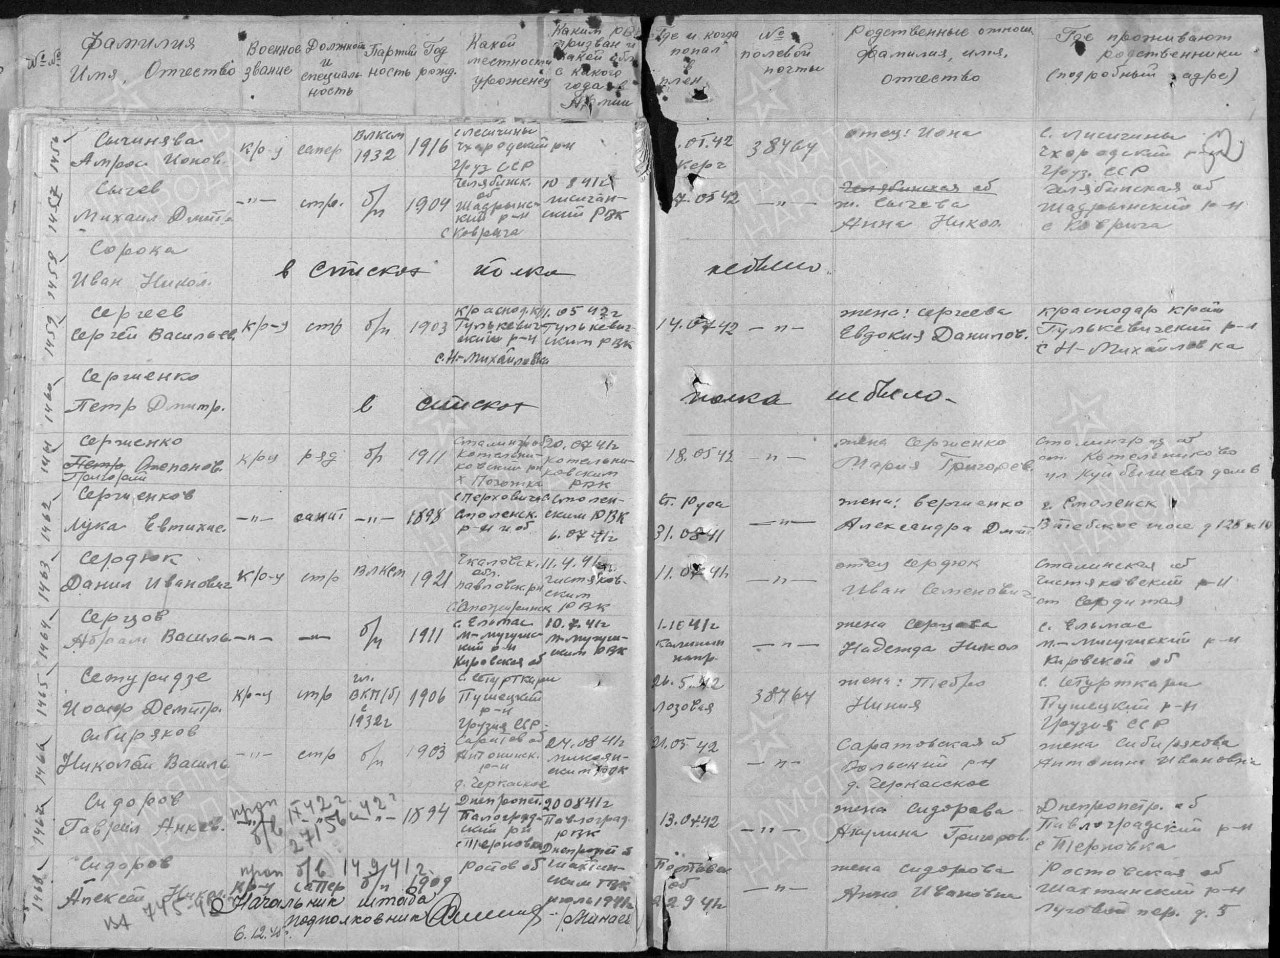 №№
Фамилия
Имя, Отчество
Военное
звание
Должность
и
специаль
ность
Партий
ность
Год
рожд.
Какой
местности
уроженец
Каким
призван и
какой обл
с какого
года в
Армии
где и когда
попал
в
плен
№
полевой
почты
Родственные отнош.
фамилия, имя,
отчество
Где проживают
родственники
(подробный адрес)
Сычинава
Амрос Ионов.
к/р-у сапер
ВЛКСМ
1932
1916
с Лесичины
Чхороцкий р-н
Груз ССР
.05.42
Керч
38764
отец: Иона
с. Лисичины
Чхороцкий р-н
Груз. ССР
1457
Сычев
Михаил Дмитр.
—"— стр. б/п 1904
Челябинск.
об
Шадрынс-
кий р-н
с Коврига
10 8 41г
лисичан-
ский РВК
7.05 42
—"—
Челябинская об
ж. Сычева
Анна Никол.
Челябинская об
Шадрынский р-н
с Коврига
1458
Сорока
Иван Никол.
в списках полка не было.
1459
Сергеев
Сергей Васильев.
к/р-у стр б/п 1903
Краснод.к/
Гулькевич
ский р-н
с.Н-Михайловка
1.05 42г
Гулькевич-
ским РВК
14.07 42
—"—
жена: Сергеева
Евдокия Данилов.
Краснодар край
Гулькевичский р-н
с Н-Михайловка
1460
Сергиенко
Петр Дмитр.
в списках полка не было-
1461
Сергиенко
Петр Степанов.
Григорий
к/р-у ряд б/п 1911
Сталингр об
Котельни-
ковский р-н
20.07 41г
котельни-
ковским
РВК
18.05 42
—"—
жена Сергиенко
Мария Григорев.
Сталинград об
ст Котелениково
ул Куйбышева дом 6
1462
Сергиенков
Лука Евтихие.
—"— санит —"— 1898
Смоленск.
р-н и об
Смолен-
ским РВК
6.07 41г
Ст. Руса
31.08 41
—"—
жена: Сергиенко
Александра Дмит
г. Смоленск
Витебское шосе д 128 к 10
1463
Сердюк
Данил Иванович
к/р-у стр ВЛКСМ 1921
Чкаловск.
обл.
Павловск.рн
11.4.41г
чистяков-
ским
РВК
11.07 41г
—"—
отец Сердюк
Иван Семенович
Сталинская об
Чистяковский р-н
ст Сердитая
1464
Серцов
Абрам Василь
—"— —"— б/п 1911
с. Ельмас
р-н
Кировская об
10.7.41г
ским РВК
1.10 41г
Калинин
напр.
—"—
жена Серцова
Надежда Никол
с. Ельмас
р-н
Кировской об
1465
Сетуридзе
Иосиф Дмитр.
к/р-у стр
чл.
ВКП/б/
с
1932г
1906
с. Стурткари
Пушецкий
р-н
Грузия ССР
26.5.42
Лозовая
38764
жена: Пебро
Ниния
с. Стурткари
Пушецкий р-н
Грузия ССР
1466
Сибиряков
Николай Василь
—"— стр б/п 1903
Саратов об
р-н
д. Черкаское
24.08 41г
микоян-
ским РВК
21.05 42
—"—
Саратовская об
Вольский р-н
д. Черкасское
жена Сибирякова
Антонин Ивановна
1467
Сидоров
Гавриил Анкев.
проп IX-42 г
б/в 27156
1894
Днепропет.
Павлоград-
ский р-н
с Терновка
20 08 41г
Павлоград.
РВК
Днепропет об
13.07 42
—"—
жена Сидорова
Акулина Григоров.
Днепропетр. об
Павлоградский р-н
с Терновка
1468
Сидоров
Алексей Никол
проп б/в 14 9 41 г
к/р-у сапер б/п 1909
Ростов об
Шахтин-
ским ГВК
июль 1941г
Полтавс
об
22 9 41г
—"—
жена Сидорова
Анна Ивановна
Ростовская об
Шахтинский р-н
Луговой пер. д. 5
Начальник штаба
подполковник /Минаев
6.12.45г.